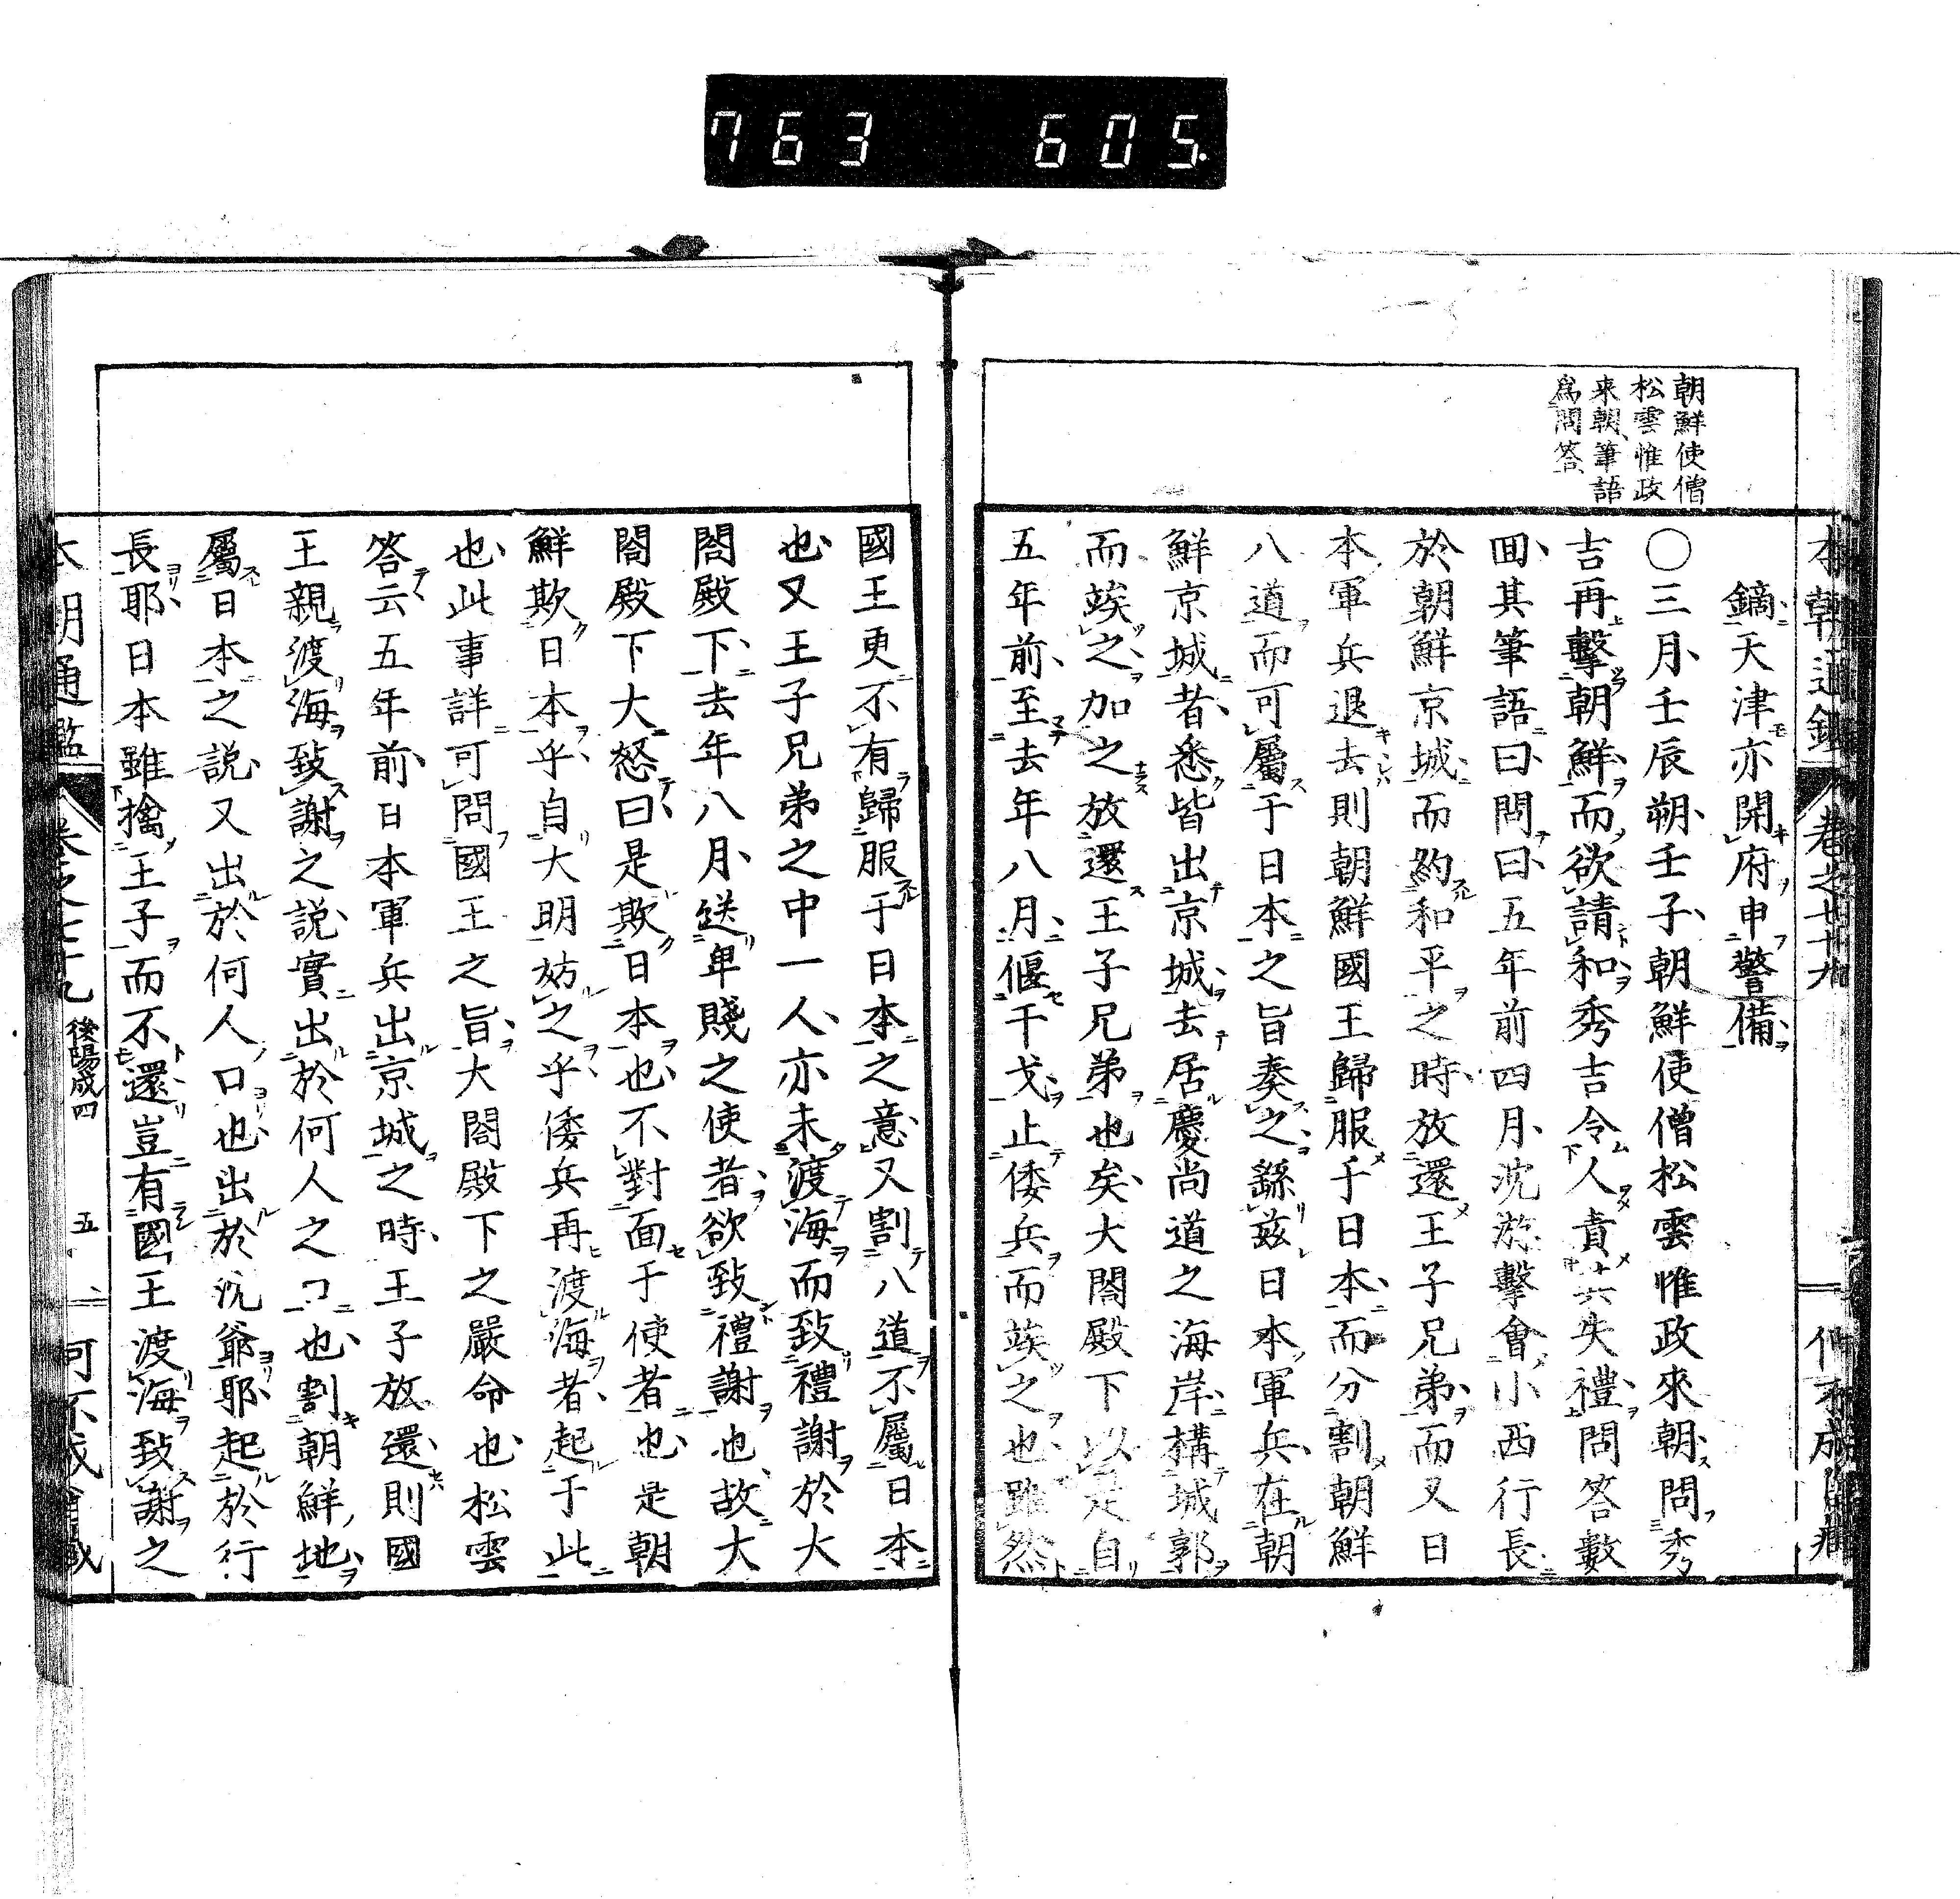 763 605
本朝通鑑 卷之七十九
朝鮮使僧
松雲惟政
来朝筆語
爲問答
鏑天津亦開府申警備
〇三月壬辰朔壬子朝鮮使僧松雲惟政來朝問秀
吉再擊朝鮮而欲請和秀吉令人責其失禮問答數
囬其筆語曰問曰五年前四月沈遊擊會小西行長
於朝鮮京城而約和平之時放還王子兄弟而又日
本軍兵退去則朝鮮國王歸服于日本而分割朝鮮
八道而可屬于日本之旨奏之繇茲日本軍兵在朝
鮮京城者悉皆出京城去居慶尚道之海岸構城郭
而竢之加之放還王子兄弟也矣大閤殿下以是自
五年前至去年八月偃干戈止倭兵而竢之也雖然
國王更不有歸服于日本之意又割八道不屬日本
也又王子兄弟之中一人亦未渡海而致禮謝於大
閤殿下去年八月送卑賤之使者欲致禮謝也故大
閤殿下大怒曰是欺日本也不對面于使者也是朝
鮮欺日本乎自大明妨之乎倭兵再渡海者起于此
也此事詳可問國王之旨大閤殿下之嚴命也松雲
答云五年前日本軍兵出京城之時王子放還則國
王親渡海致謝之説實出於何人之口也割朝鮮地
屬日本之説又出於何人口也出於沈爺耶起於行
長耶日本雖擒王子而不還豈有國王渡海致謝之
本朝通鑑 卷之七十九 後陽成四 五